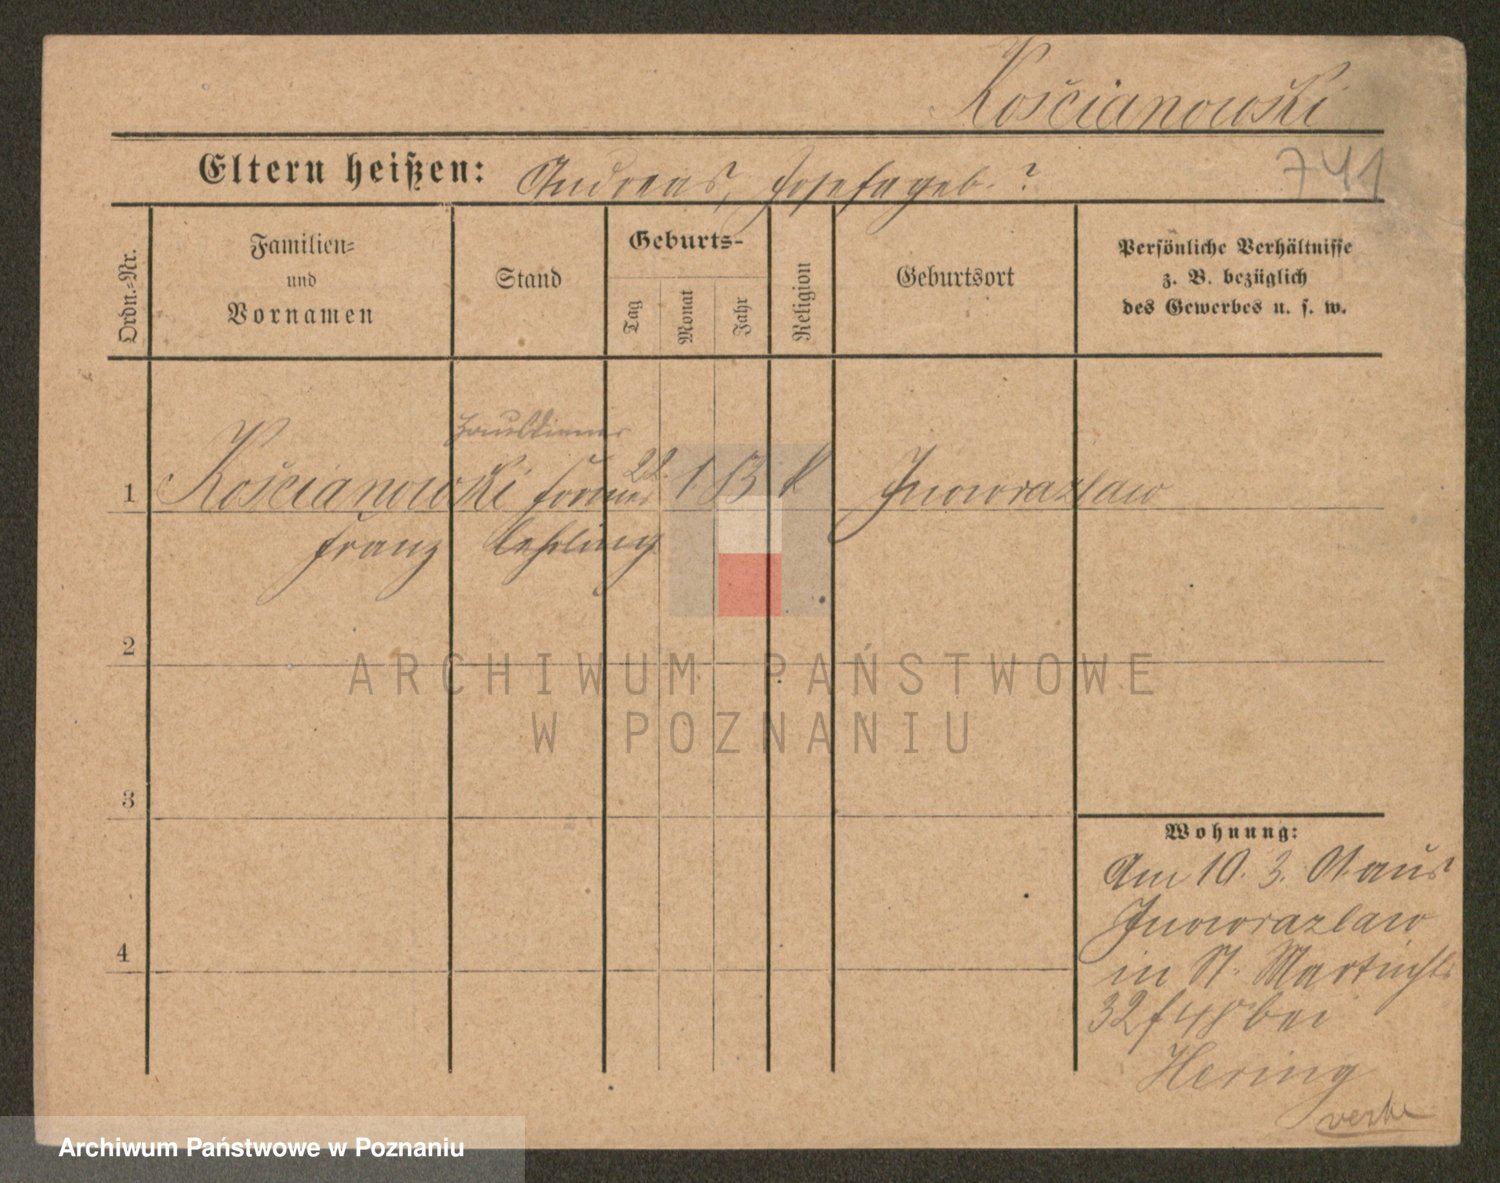 Kościanowski
Eltern heißen: Andreas, Josefa geb. ?
741
Ordn.-Nr.
Familien-
und
Vornamen
Stand
Geburts-
Tag
Monat
Jahr
Religion
Geburtsort
Persönliche Verhältnisse
z. B. bezüglich
des Gewerbes u. s. w.
Hausdiener
1 Kościanowski Former 22. 1. k Inowrazlaw
Franz Lehrling
2
ARCHIWUM PAŃSTWOWE
W POZNANIU
3
Wohnung:
Am 10. 3. 01 aus
Inowrazlaw
4
in St. Martinstr
32 bei
Hering
Archiwum Państwowe w Poznaniu